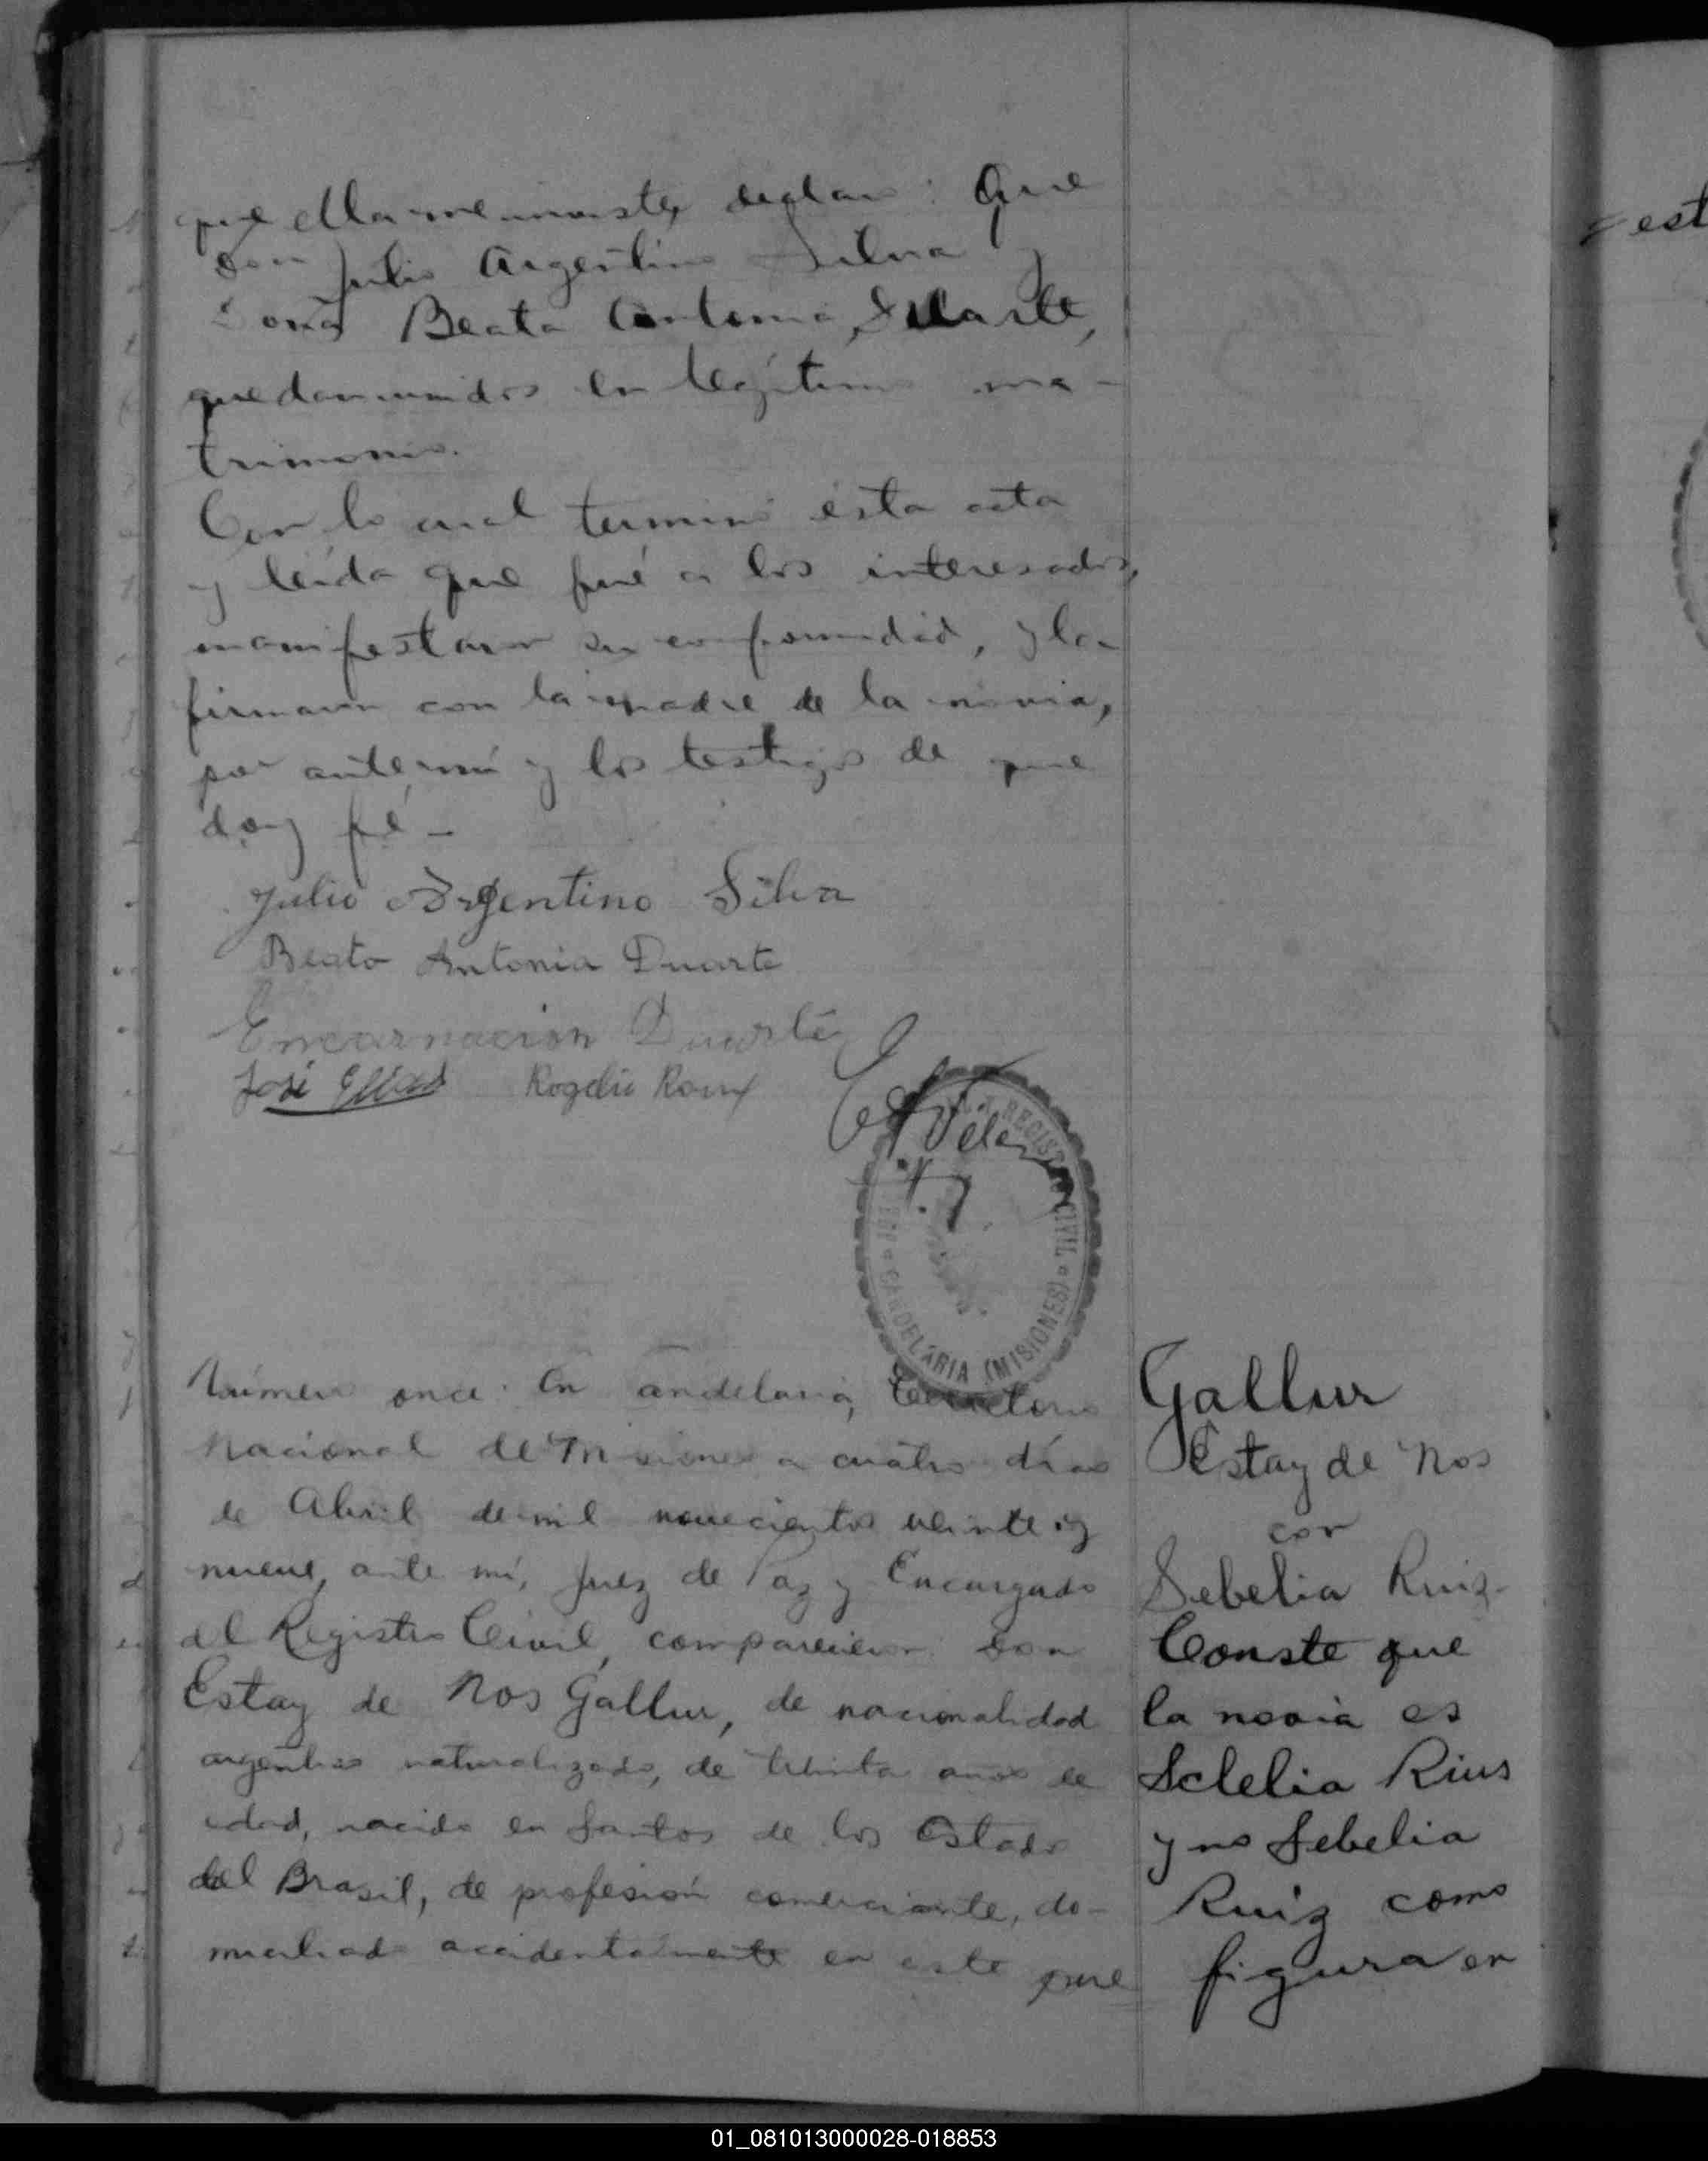 que ella me inviste, declaro: Que
don Julio Argentino Silva y
doña Beata Antonia Duarte,
quedan unidos en legítimo ma-
trimonio.
Con lo cual terminó ésta acta
y leída que fué a los interesados,
manifestaron su conformidad, y la
firmaron con la madre de la novia,
por ante mí y los testigos de que
doy fé -
Julio Argentino Silva
Beata Antonia Duarte
Encarnacion Duarte
José Elias Rogelio Roux
REGISTRO CIVIL
CANDELARIA (MISIONES)
Número once: En Candelaria, Territorio
Nacional de Misiones a cuatro días
de Abril de mil novecientos veinte y
nueve, ante mí, Juez de Paz y Encargado
del Registro Civil, comparecieron don
Estay de Nos Gallur, de nacionalidad
argentino naturalizado, de treinta años de
edad, nacido en Santos de los Estado
del Brasil, de profesión comerciante, do-
miciliado accidentalmente en este pue
Gallur
Estay de Nos
con
Sebelia Ruiz-
Conste que
la novia es
Sclelia Rius
y no Sebelia
Ruiz como
figura en
est
01_081013000028-018853